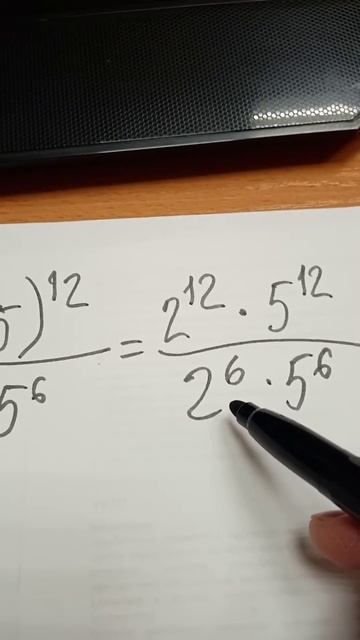 5)¹² / 5⁶ = 2¹² · 5¹² / 2⁶ · 5⁶